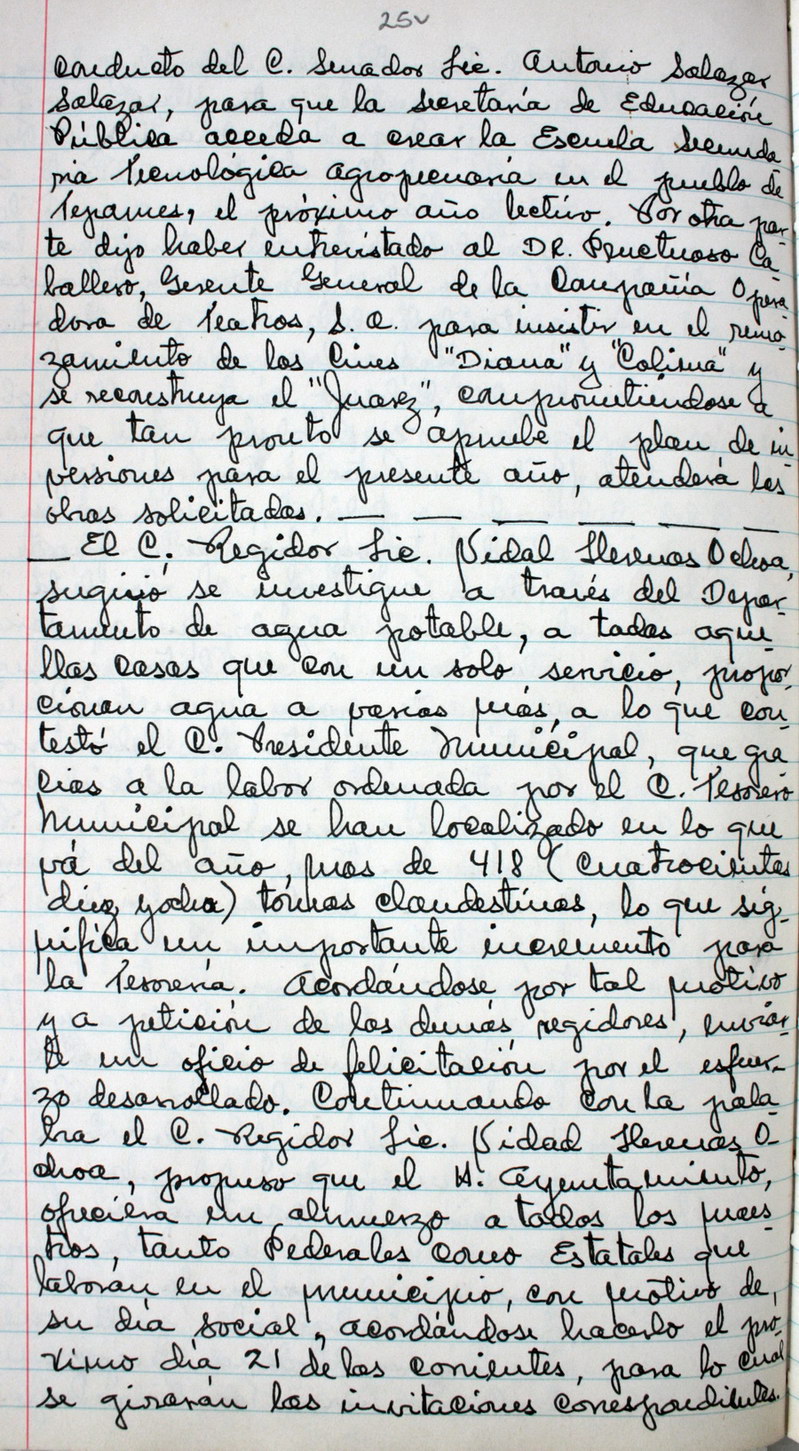 25v
conducto del C. Senador Lic. Antonio Salazar
Salazar, para que la Secretaría de Educación
Pública acceda a crear la Escuela Secunda
ria Tecnológica Agropecuaria en el pueblo de
Tepames, el próximo año lectivo. Por otra par-
te dijo haber entrevistado al DR. Fructuoso Ca-
ballero, Gerente General de la Compañía Opera
dora de Teatros, S.A. para insistir en el remo-
zamiento de los Cines "Diana" y "Colima" y
se reconstruya el "Juarez", comprometiéndose a
que tan pronto se apruebe el plan de in
versiones para el presente año, atenderá las
obras solicitadas. — — — — — —
— El C. Regidor Lic. Vidal Llerenas Ochoa,
sugirió se investigue a través del Depar-
tamento de agua potable, a todas aque-
llas casas que con un solo servicio, propor-
cionan agua a varias más, a lo que con
testó el C. Presidente Municipal, que gra
cias a la labor ordenada por el C. Tesorero
Municipal se han localizado en lo que
vá del año, mas de 418 (cuatrocientas
diez y ocho) tomas clandestinas, lo que sig-
nifica un importante incremento para
la Tesorería. Acordándose por tal motivo
y a petición de los demás regidores, enviar-
le un oficio de felicitación por el esfuer-
zo desarrollado. Continuando con la pala
bra el C. Regidor Lic. Vidad Llerenas O-
choa, propuso que el H. Ayuntamiento,
ofreciera un almuerzo a todos los maes-
tros, tanto Federales como Estatales que
laboran en el municipio, con motivo de,
su día social, acordándose hacerlo el pró-
ximo día 21 de los corrientes, para lo cual
se girarán las invitaciones correspondientes.